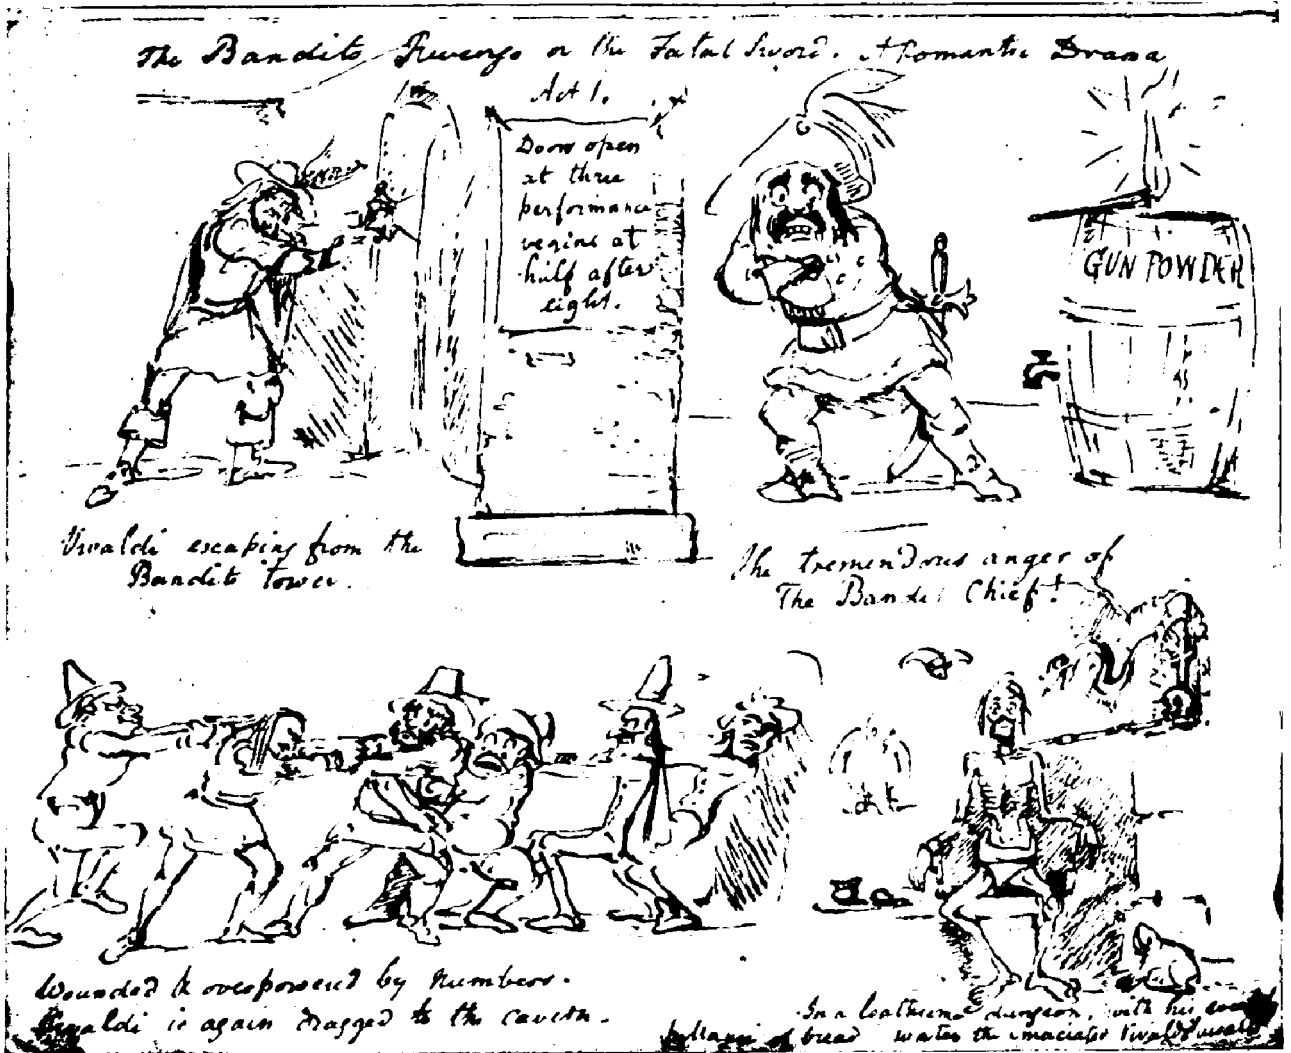 The Bandits Revenge or the Fatal Sword. A Romantic Drama
Act 1.
Doors open
at three
performance
begins at
half after
eight.
GUN POWDER
Vivaldi escaping from the
Bandits tower.
The tremendous anger of
The Bandit Chief!
Wounded & overpowered by numbers.
Vivaldi is again dragged to the cavern.
In a loathsome dungeon, with his
of bread water the emaciated Vivaldi